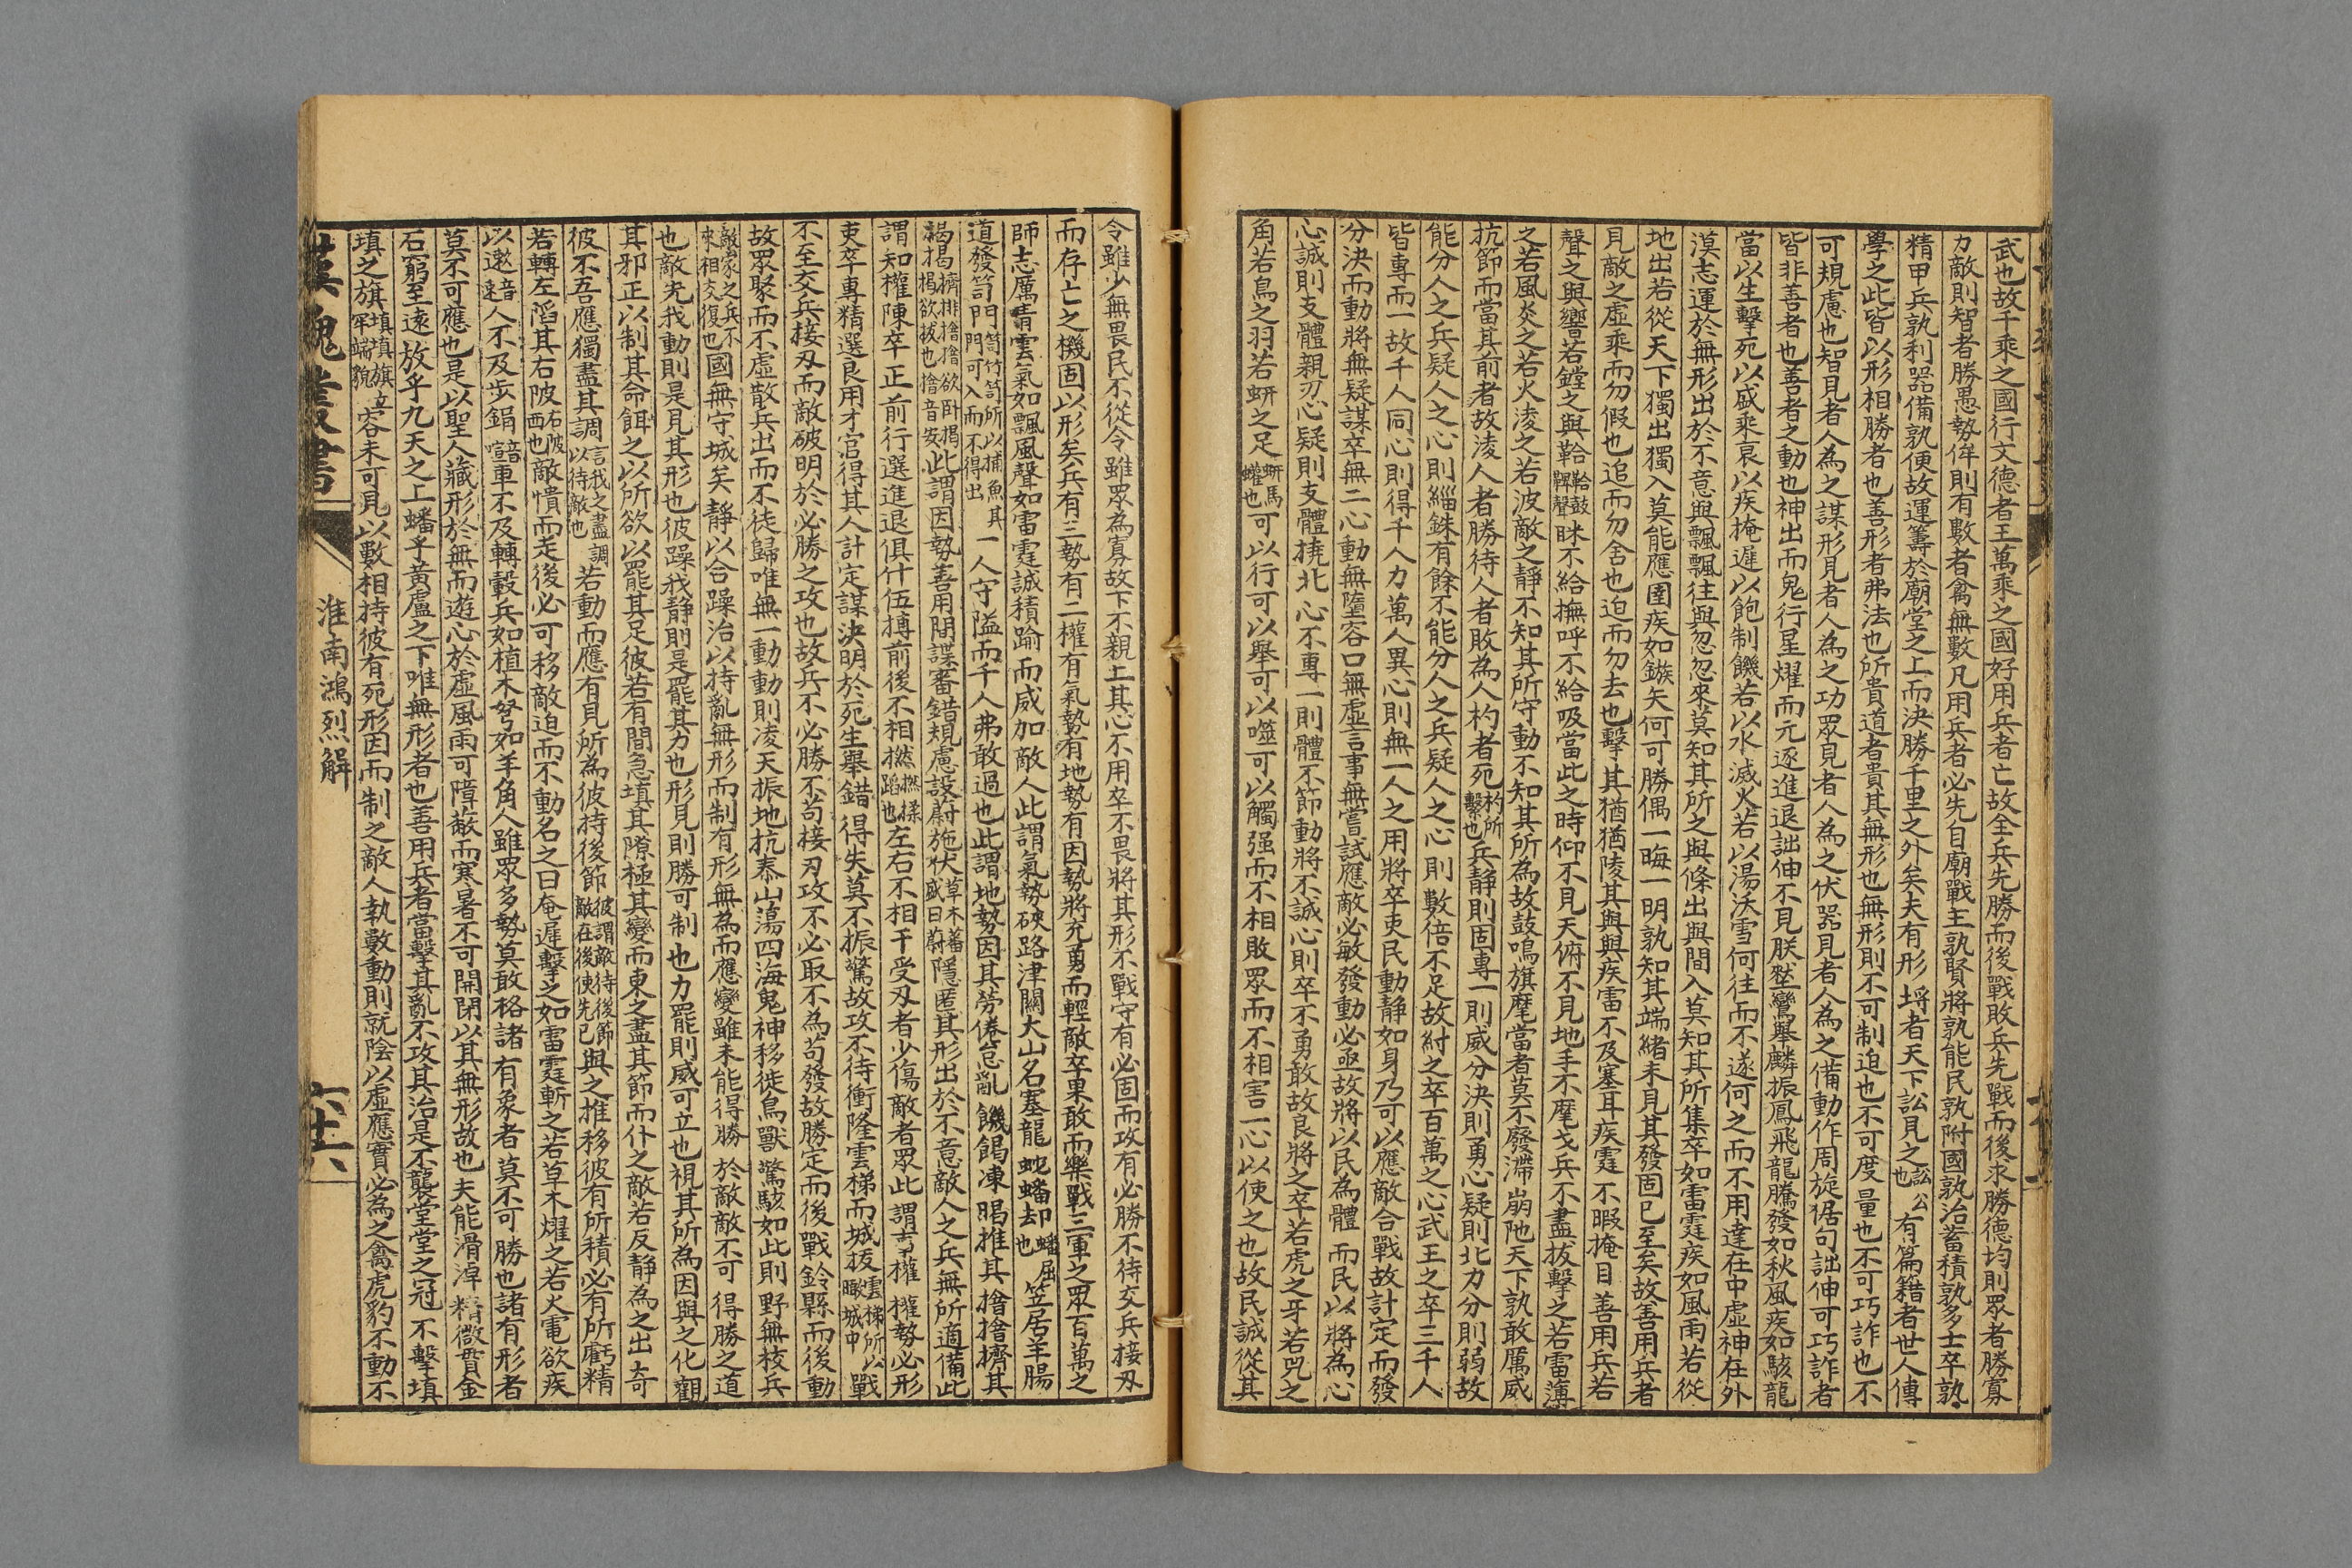 武也故千乘之國行文德者王萬乘之國好用兵者亡故全兵先勝而後戰敗兵先戰而後求勝德均則眾者勝寡
力敵則智者勝愚勢侔則有數者禽無數凡用兵者必先自廟戰主孰賢將孰能民孰附國孰治蓄積孰多士卒孰
精甲兵孰利器備孰便故運籌於廟堂之上而決勝千里之外矣夫有形埒者天下訟見之訟公也有篇籍者世人傳
學之此皆以形相勝者也善形者弗法也所貴道者貴其無形也無形則不可制迫也不可度量也不可巧詐也不
可規慮也智見者人為之謀形見者人為之功眾見者人為之伏器見者人為之備動作周旋倨句詘伸可巧詐者
皆非善者也善者之動也神出而鬼行星燿而元逐進退詘伸不見朕墊鸞舉麟振鳳飛龍騰發如秋風疾如駭龍
當以生擊死以盛乘衰以疾掩遲以飽制饑若以水滅火若以湯沃雪何往而不遂何之而不用達在中虛神在外
漠志運於無形出於不意與飄飄往與忽忽來莫知其所之與條出與間入莫知其所集卒如雷霆疾如風雨若從
地出若從天下獨出獨入莫能應圉疾如鏃矢何可勝偶一晦一明孰知其端緒未見其發固已至矣故善用兵者
見敵之虛乘而勿假也追而勿舍也迫而勿去也擊其猶猶陵其與與疾雷不及塞耳疾霆不暇掩目善用兵若
聲之與響若鏜之與鞈鞈鼓鞞聲眯不給撫呼不給吸當此之時仰不見天俯不見地手不麾戈兵不盡拔擊之若雷薄
之若風炎之若火淩之若波敵之靜不知其所守動不知其所為故鼓鳴旗麾當者莫不廢滯崩阤天下孰敢厲威
抗節而當其前者故淩人者勝待人者敗為人杓者死杓所擊也兵靜則固專一則威分決則勇心疑則北力分則弱故
能分人之兵疑人之心則錙銖有餘不能分人之兵疑人之心則數倍不足故紂之卒百萬之心武王之卒三千人
皆專而一故千人同心則得千人力萬人異心則無一人之用將卒吏民動靜如身乃可以應敵合戰故計定而發
分決而動將無疑謀卒無二心動無墮容口無虛言事無嘗試應敵必敏發動必亟故將以民為體而民以將為心
心誠則支體親刃心疑則支體撓北心不專一則體不節動將不誠心則卒不勇敢故良將之卒若虎之牙若兕之
角若鳥之羽若蚈之足蚈馬蠸也可以行可以舉可以噬可以觸强而不相敗眾而不相害一心以使之也故民誠從其
令雖少無畏民不從令雖眾為寡故下不親上其心不用卒不畏將其形不戰守有必固而攻有必勝不待交兵接刃
而存亡之機固以形矣兵有三勢有二權有氣勢有地勢有因勢將充勇而輕敵卒果敢而樂戰三軍之眾百萬之
師志厲青雲氣如飄風聲如雷霆誠積踰而威加敵人此謂氣勢硤路津關大山名塞龍虵蟠却蟠屈也笠居羊腸
道發笱門笱竹笱所以捕魚其門可入而不得出一人守隘而千人弗敢過也此謂地勢因其勞倦怠亂饑餲凍暍推其摿摿擠其
揭揭擠排摿摿欲卧揭揭欲拔也摿音安此謂因勢善用間諜審錯規慮設蔚施伏草木蕃盛曰蔚隱匿其形出於不意敵人之兵無所適備此
謂知權陳卒正前行選進退俱什伍搏前後不相撚撚揉蹈也左右不相干受刃者少傷敵者眾此謂事權權勢必形
吏卒專精選良用才官得其人計定謀決明於死生舉錯得失莫不振驚故攻不待衝隆雲梯而城拔雲梯所以瞰城中戰
不至交兵接刃而敵破明於必勝之攻也故兵不必勝不苟接刃攻不必取不為苟發故勝定而後戰鈴縣而後動
故眾聚而不虛散兵出而不徒歸唯無一動動則凌天振地抗泰山蕩四海鬼神移徙鳥獸驚駭如此則野無校兵
敵家之兵不來相交復也國無守城矣靜以合躁治以持亂無形而制有形無為而應變雖未能得勝於敵敵不可得勝之道
也敵先我動則是見其形也彼躁我靜則是罷其力也形見則勝可制也力罷則威可立也視其所為因與之化觀
其邪正以制其命餌之以所欲以罷其足彼若有間急填其隙極其變而束之盡其節而仆之敵若反靜為之出奇
彼不吾應獨盡其調言我之盡調以待敵也若動而應有見所為彼持後節彼謂敵待後節敵在後使先己與之推移彼有所積必有所虧精
若轉左䧟其右陂右陂西也敵憒而走後必可移敵迫而不動名之曰奄遲擊之如雷霆斬之若草木燿之若火電欲疾
以遬音速人不及步鋗音喧車不及轉轂兵如植木弩如羊角人雖眾多勢莫敢格諸有象者莫不可勝也諸有形者
莫不可應也是以聖人藏形於無而遊心於虛風雨可障蔽而寒暑不可開閉以其無形故也夫能滑淖精微貫金
石窮至遠放乎九天之上蟠乎黃盧之下唯無形者也善用兵者當擊其亂不攻其治是不襲堂堂之寇不擊填
填之旗填填旗立牢端貌容未可見以數相持彼有死形因而制之敵人執數動則就陰以虛應實必為之禽虎豹不動不
漢魏叢書 淮南鴻烈解